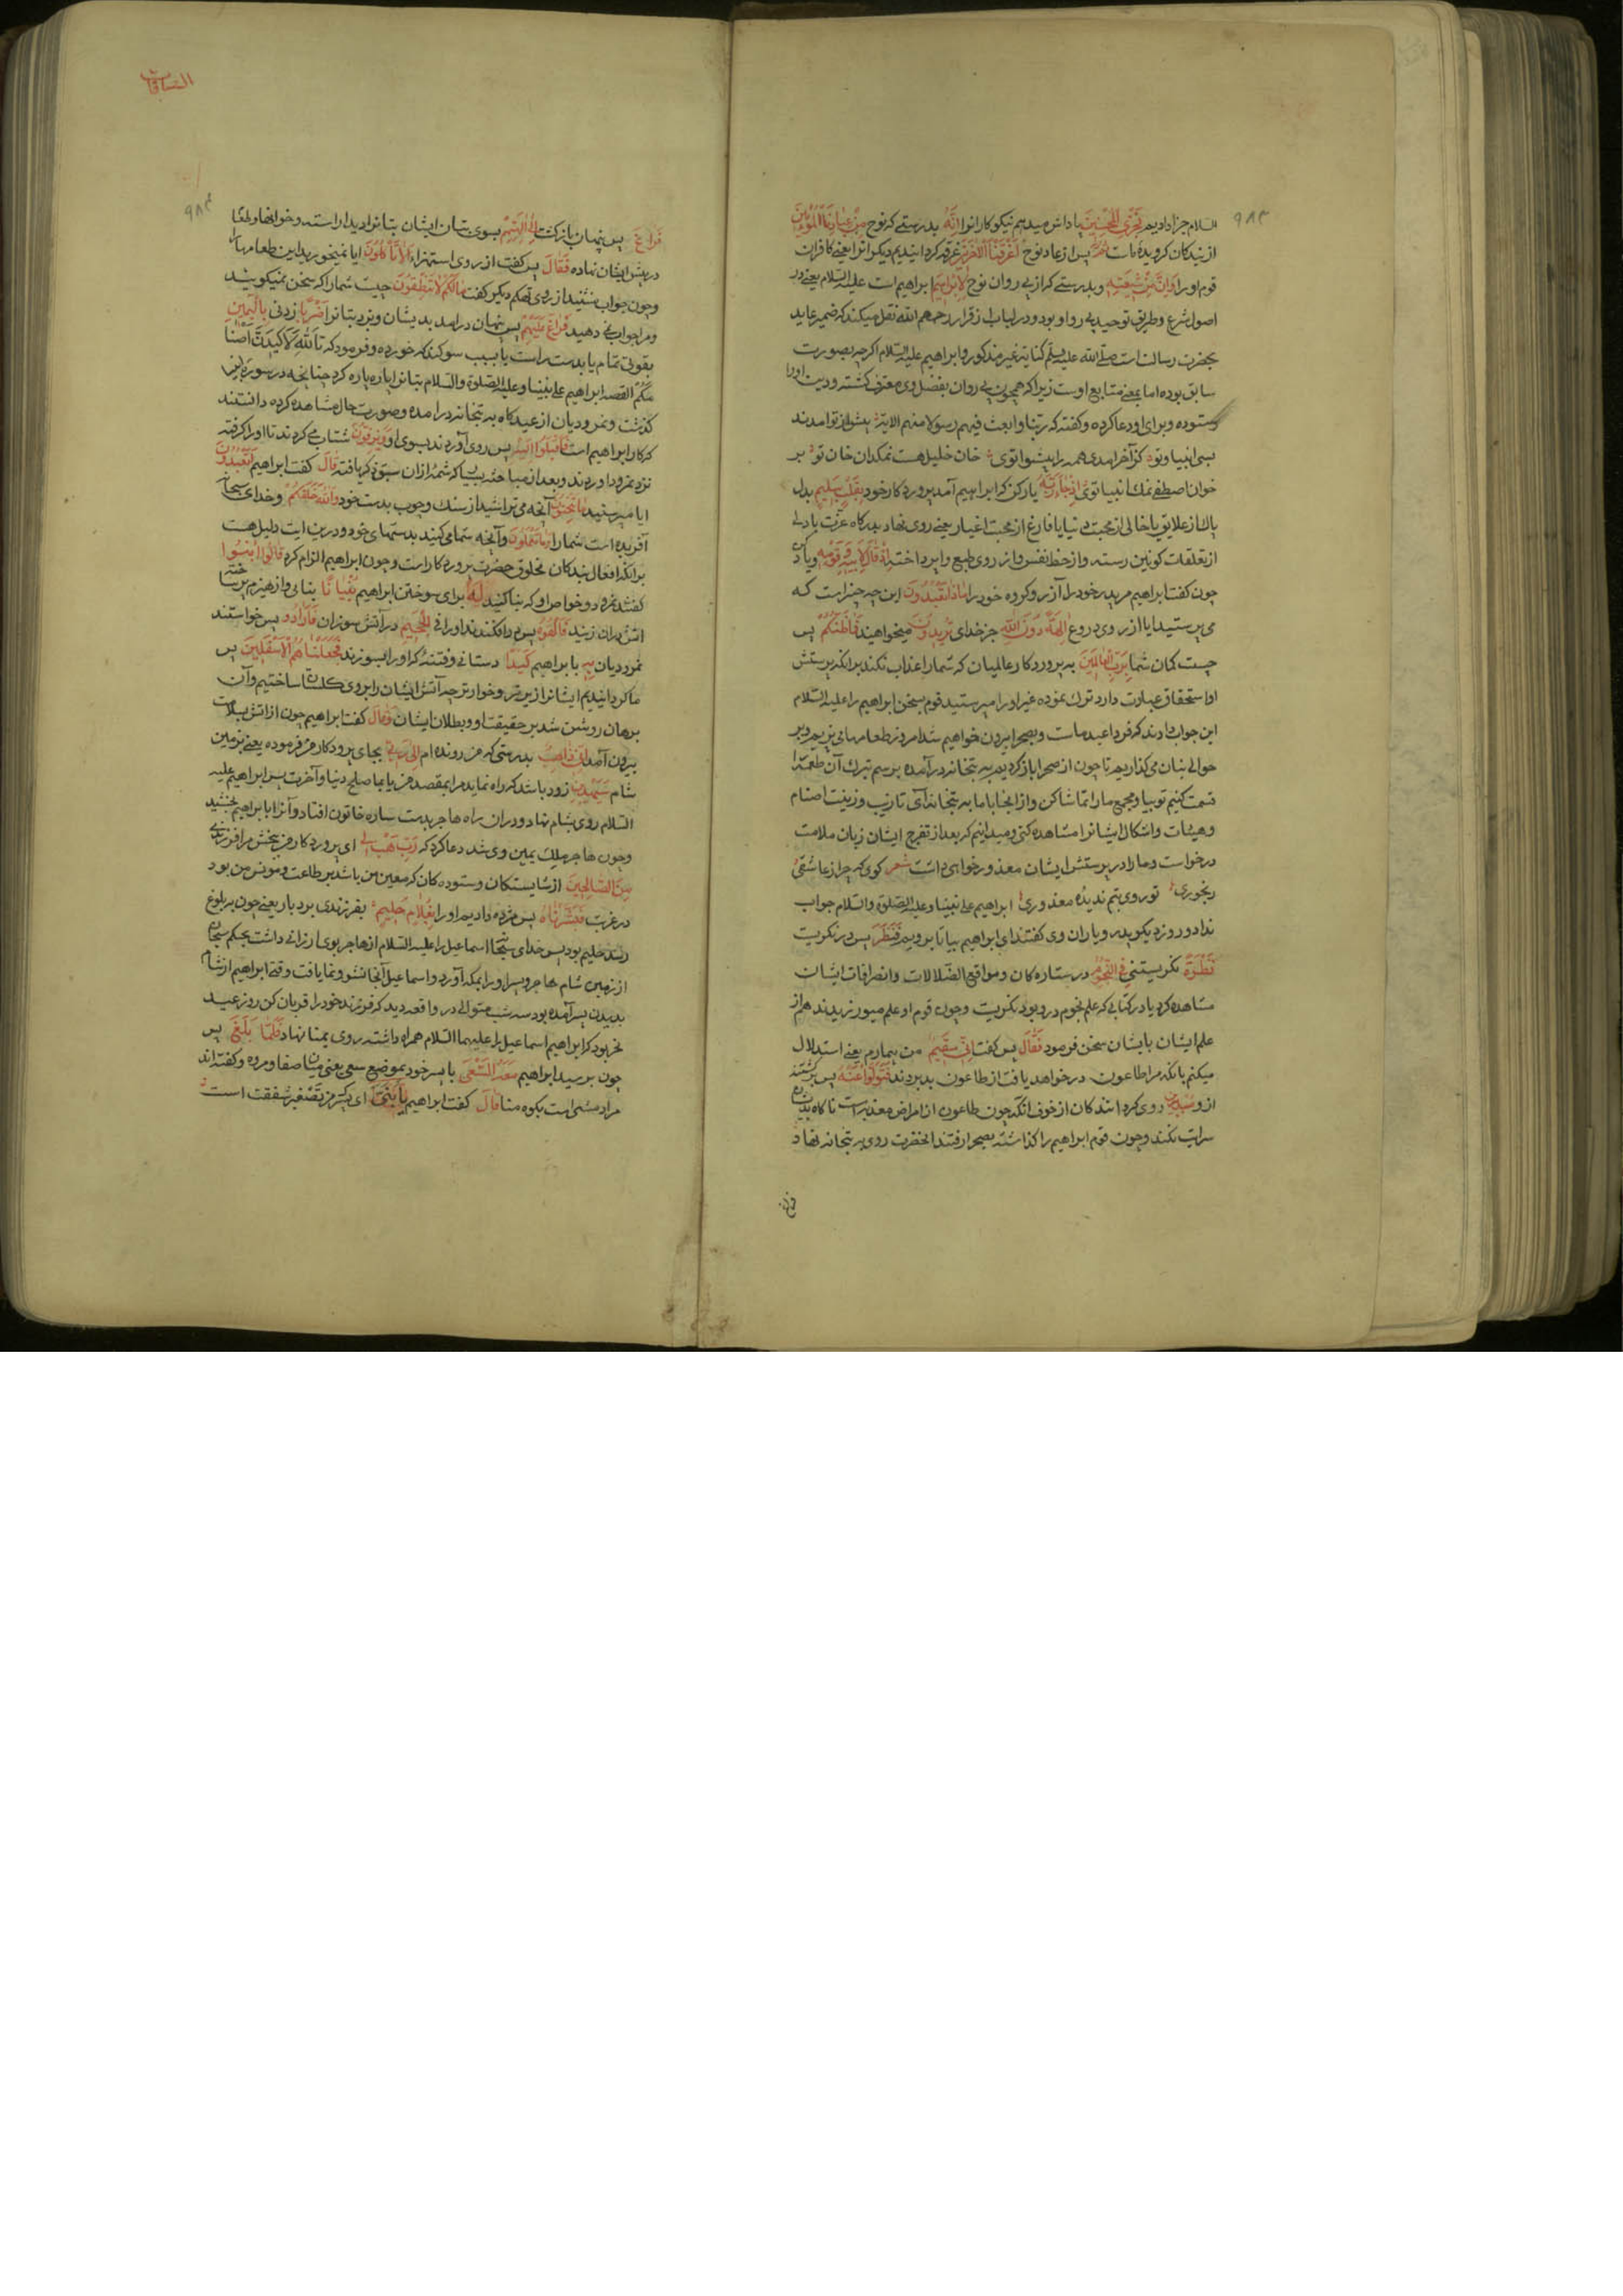 ٩٨٣
السلام جزا دادیم نجزی المحسنین پاداش میدهم نیکوکارانرا انه بدرستی که نوح من عبادنا المؤمنین
از بندکان کرویدهٔ ماست ثم پس از عاد نوح اغرقنا الاخرین غرقه کردانیدیم دیکرانرا یعنی کافران
قوم او را وان من شیعته وبدرستی که از پی روان نوح لابراهیم ابراهیم است علیه السلام یعنی در
اصول شرع وطریق توحید پی رو او بود ودر لباب از فرا رحمهم الله نقل میکند که ضمیر عاید
بحضرت رسالت است صلی الله علیه وسلم کنایة غیر مذکور وابراهیم علیه السلام اکرچه بصورت
سابق بوده اما بمعنی متابع اوست زیرا که همچون پی روان بفضل وی معترف کشته ودین او را
ستوده وبرای او دعا کرده وکفته که ربنا وابعث فیهم رسولا منهم الایة پیش از تو امدند
بسی انبیا وتو کر آخر امدی همه را پیشوا توی خان خلیل هست نمکدان خان تو بر
خوان اصطفی نمک انبیا توی اذ جاء ربه یاد کن که ابراهیم آمد بپروردکار خود بقلب سلیم بدل
پاک از علایق یا خالی از محبت دنیا یا فارغ از محبت اغیار یعنی روی نهاد بدرکاه عزت با دلی
از تعلقات کونین رسته واز حظ نفس واز روی طبع واپرداخته اذ قال لابیه وقومه ویاد کن
چون کفت ابراهیم مر پدر خود را آزر وکروه خود را ماذا تعبدون این چه چیز است که
می پرستید ایا از روی دروغ الهة دون الله جز خدای تریدون میخواهید فما ظنکم پس
چیست کمان شما برب العالمین به پروردکار عالمیان که شما را عذاب نکند برانکه پرستش
او استحقاق عبادت دارد ترک نموده غیر او را میپرستید قوم سخن ابراهیم را علیه السلام
این جواب دادند که فردا عید ماست وبصحرا بیرون خواهیم شد امروز طعامها می پزیم وبر
حوالی بتان می کذاریم تا چون از صحرا باز کردیم به بتخانه درآمده برسم تبرک آن طعمه را
قسمت کنیم تو بیا ومجمع ما را تماشا کن واز انجا با ما به بتخانه آی تا زیب وزینت اصنام
وهیئات واشکال ایشانرا مشاهده کنی ومیدانیم که بعد از تفرج ایشان زبان ملامت
درخواست وما را در پرستش ایشان معذور خواهی داشت شعر کوی که چرا ز عاشقی
رنجوری تو روی بتم ندیدهٔ معذوری ابراهیم علی نبینا وعلیه الصلوة والسلام جواب
نداد وروز دیکر پدر ویاران وی کفتند ای ابراهیم بیا تا برویم فنظر پس در نکریست
نظرة نکریستنی فی النجوم در ستاره کان ومواقع اتصالات وانصرافات ایشان
مشاهده کرد یا در کتابی که علم نجوم در و بود نکریست وچون قوم او علم میورزیدند هم از
علم ایشان با ایشان سخن فرمود فقال پس کفت انی سقیم من بیمارم یعنی استدلال
میکنم بانکه مرا طاعون درخواهد یافت از طاعون بدبردند فتولوا عنه پس برکشتند
ازو مدبرین روی کردانندکان از خوف انکه چون طاعون از امراض معدیه است ناکاه بدیشان
سرایت نکند وچون قوم ابراهیم را کذاشته بصحرا رفتند انحضرت روی به بتخانه نهاد
فراغ
الصافات
٩٨٣
فراغ پس پنهان بازکشت الی الهتهم بسوی بتان ایشان بتانرا دید اراسته وخوانها وطعامها
در پیش ایشان نهاده فقال پس کفت از روی استهزاء الا تأکلون ایا نمیخورید این طعامها را
وچون جواب نشنید از روی تهکم دیکر کفت مالکم لا تنطقون چیست شما را که سخن نمیکویید
ومرا جواب نمی دهید فراغ علیهم پس پنهان درامد بدیشان وبزد بتانرا ضربا زدنی بالیمین
بقوتی تمام یا بدست راست یا بسبب سوکند که خورده وفرمود که تالله لاکیدن اصنا
مکم القصه ابراهیم علی نبینا وعلیه الصلوة والسلام بتانرا پاره پاره کرد چنانچه در سوره انبیا
کذشت ونمرودیان از عیدکاه به بتخانه درامده وصورت حال مشاهده کرده دانستند
که کار ابراهیم است فاقبلوا الیه پس روی آوردند بسوی او یزفون شتاب می کردند تا او را کرفته
نزد نمرود اوردند وبعد از مباحثه بسیار که شمهٔ ازان سبق ذکر یافته قال کفت ابراهیم اتعبدون
ایا میپرستید ما تنحتون آنچه می تراشید از سنک وچوب بدست خود والله خلقکم وخدای سبحانه
آفریده است شما را وما تعملون وآنچه شما می کنید بدستهای خود ودرین ایت دلیل هست
برانکه افعال بندکان مخلوق حضرت پروردکار است وچون ابراهیم الزام کرد قالوا ابنوا
کفتند نمرود وخواص او که بنا کنید له برای سوختن ابراهیم بنیانا بنایی واز هیزم پر ساخته
اتش دران زنید فالقوه پس در افکنید او را فی الجحیم در آتش سوزان فارادوا پس خواستند
نمرودیان به با ابراهیم کیدا دستانی وفتنهٔ که او را بسوزند فجعلناهم الاسفلین پس
ما کردانیدیم ایشانرا زیرتر وخوارتر چه آتش ایشان را بروی کلستان ساختیم وآن
برهان روشن شد بر حقیقت او وبطلان ایشان وقال کفت ابراهیم چون از آتش بسلامت
بیرون آمد انی ذاهب بدرستی که من رونده ام الی ربی بجای پروردکار من فرموده یعنی بزمین
شام سیهدین زود باشد که راه نماید مرا بمقصد من یا بما صلح دنیا وآخرت پس ابراهیم علیه
السلام روی بشام نهاد ودران راه هاجر بدست ساره خاتون افتاد وآنرا بابراهیم بخشید
وچون هاجر بملک یمین وی شد دعا کرد که رب هب لی ای پروردکار من ببخش مرا فرزندی
من الصالحین از شایستکان وستوده کان که معین من باشد بر طاعت ومونس من بود
در غربت فبشرناه پس مژده دادیم او را بغلام حلیم بفرزندی بردبار یعنی چون ببلوغ
رسد حلیم بود پس خدای سبحانه اسماعیل را علیه السلام از هاجر بوی ارزانی داشت بحکم سبحانه
از زمین شام هاجر وپسر او را بمکه آورد واسماعیل آنجا نشو ونما یافت وقتی ابراهیم از شام
بدیدن پسر آمده بود سه شب متوالی در واقعه دید که فرزند خود را قربان کن روز عید
نحر بود که ابراهیم اسماعیل را علیهما السلام همراه داشته روی بمنا نهاد فلما بلغ پس
چون برسید ابراهیم معه السعی با پسر خود بموضع سعی یعنی میان صفا ومروه وکفته اند
مراد مشی است بکوه منا قال کفت ابراهیم یا بنی ای پسرک من تصغیر شفقت است